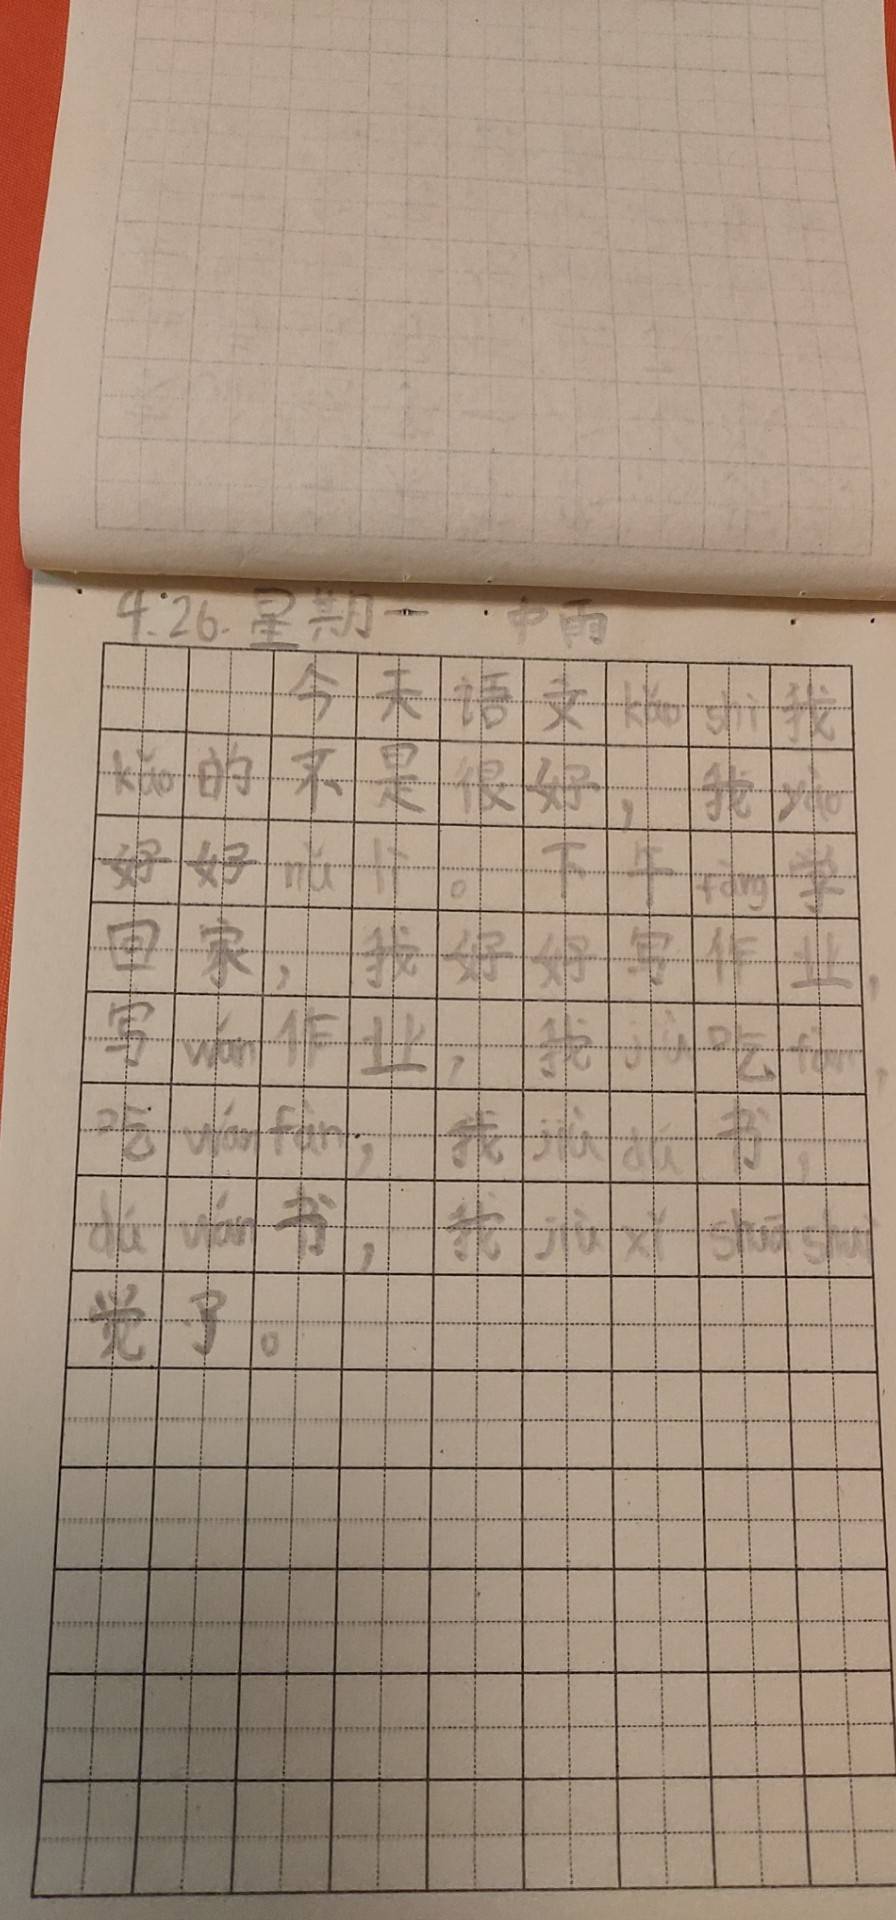 4.26. 星期一 中雨
今天语文kǎo shì我
kǎo的不是很好，我yào
好好nǔ lì。下午fàng学
回家，我好好写作业，
写wán作业，我jiù吃fàn，
吃wánfàn，我jiù dú书，
dú wán书，我jiù xǐ shuā shuì
觉了。